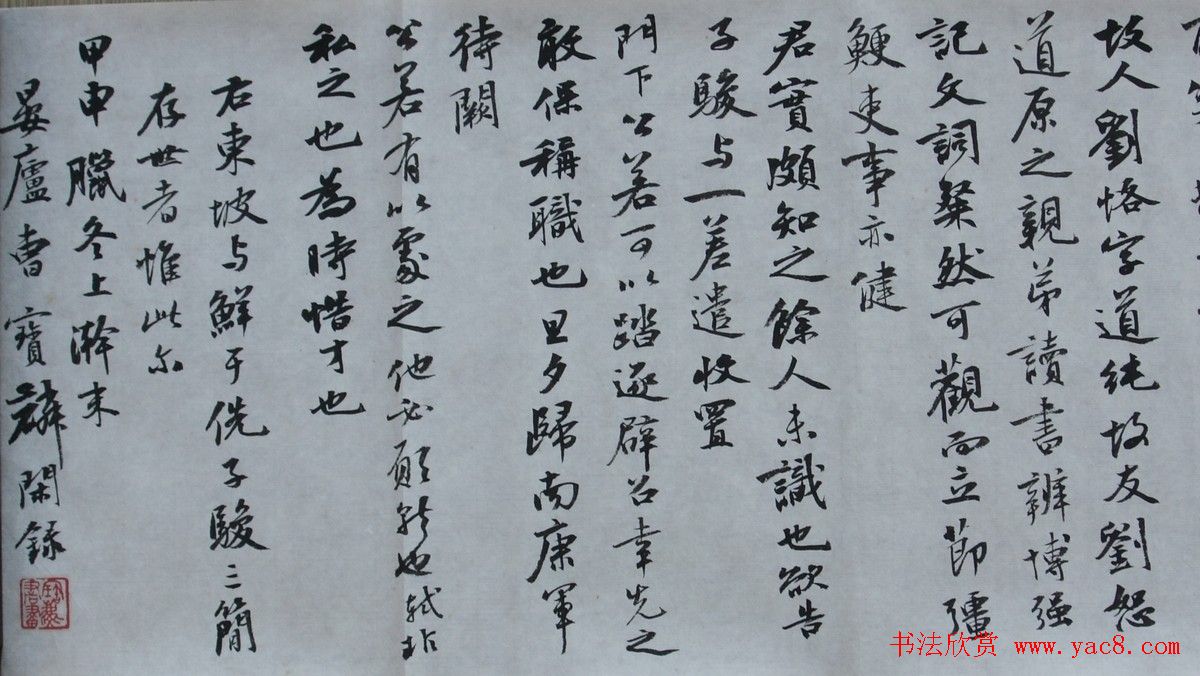 故人劉恪字道純故友劉恕
道原之親弟讀書辨博强
記文詞粲然可觀而立節彊
鯁吏事亦健
君實頗知之餘人未識也欲告
子駿与一差遣收置
門下公若可以踏逐辟召幸先之
敢保稱職也旦夕歸南康軍
待闕
公若有以處之他必願就也軾非
私之也為時惜才也
右東坡与鮮于侁子駿二簡
存世者惟此尔
甲申臘冬上澣末
晏廬曹寶麟閑錄
书法欣赏 www.yac8.com